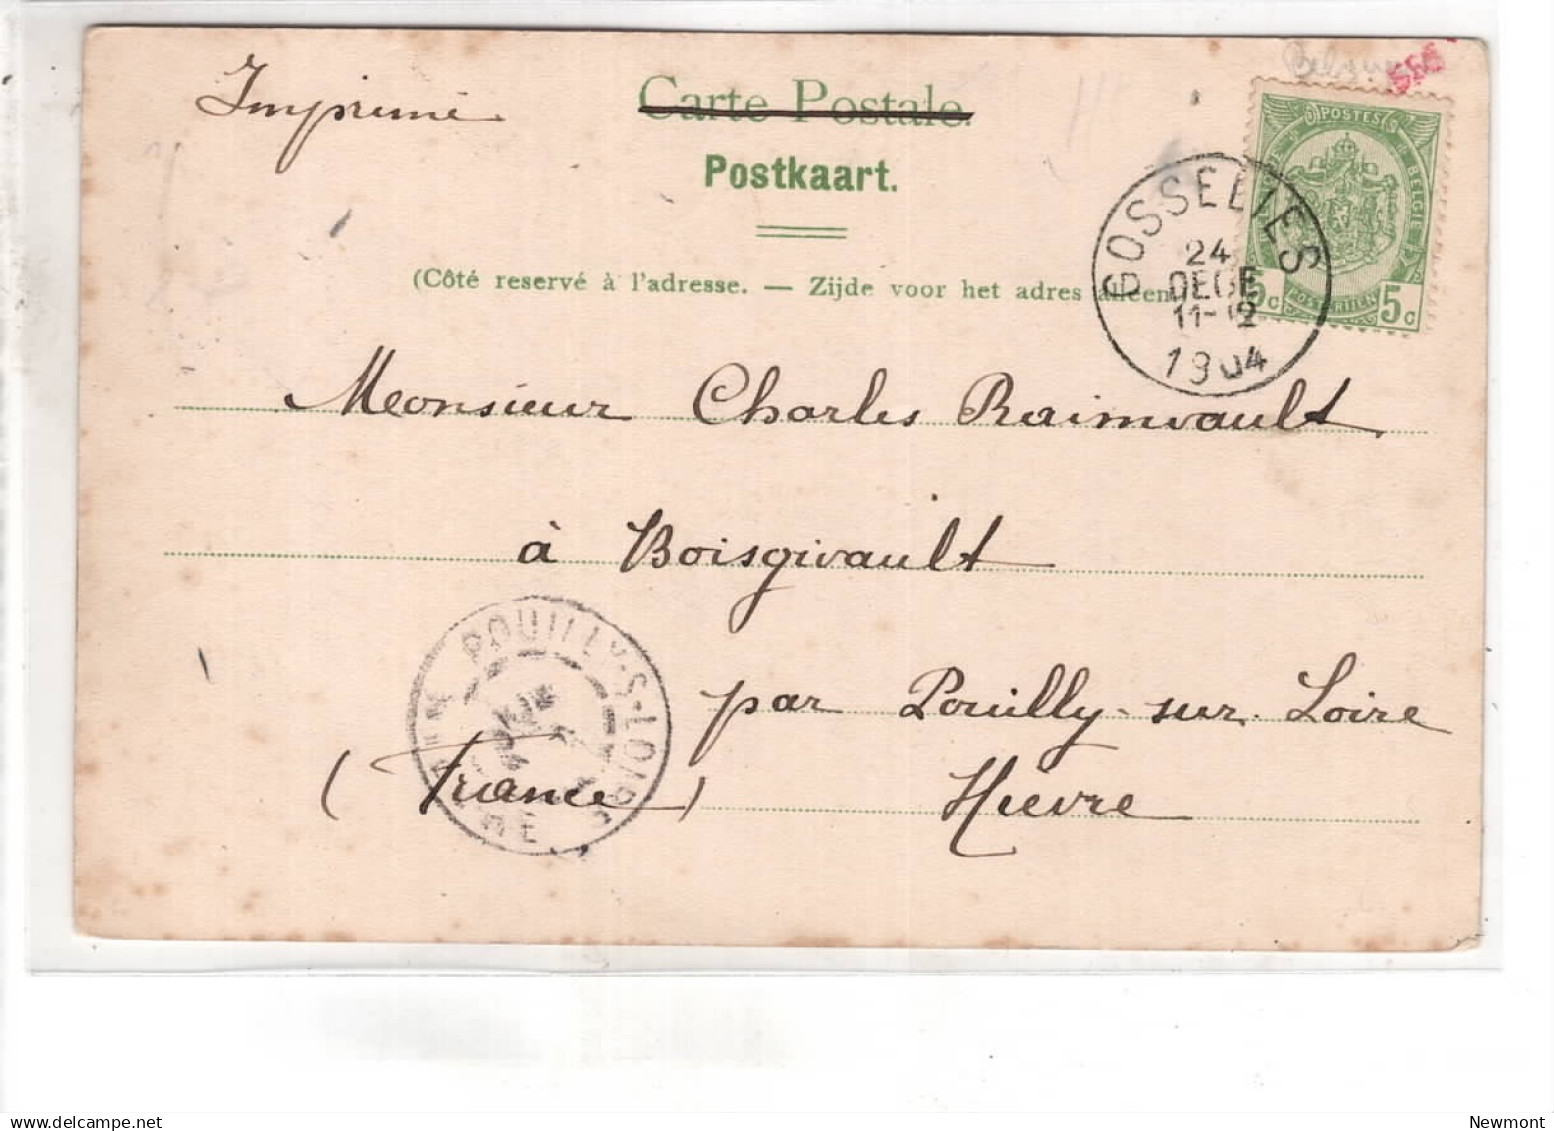 Imprimé
Carte Postale.
Postkaart.
POSTES
BELGIË
5 c POSTERIJEN 5 c
GOSSELIES
24
DECE
11-12
1904
(Côté reservé à l'adresse. — Zijde voor het adres alleen
Monsieur Charles Raimvault
à Boisgivault
par Pouilly-sur-Loire
(France) Nièvre
POUILLY-S-LOIRE
NIÈVRE
delcampe.net
Newmont